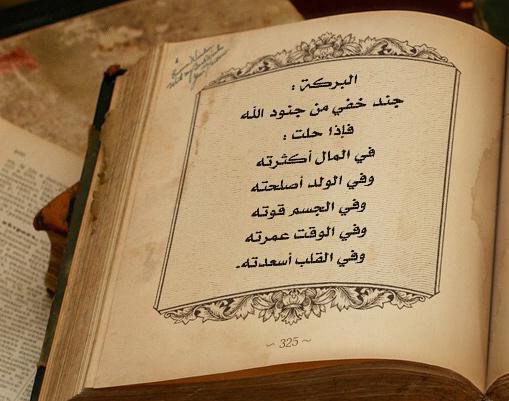 البركة :
جند خفي من جنود الله
فإذا حلت :
في المال أكثرته
وفي الولد أصلحته
وفي الجسم قوته
وفي الوقت عمرته
وفي القلب أسعدته.
~ 325 ~